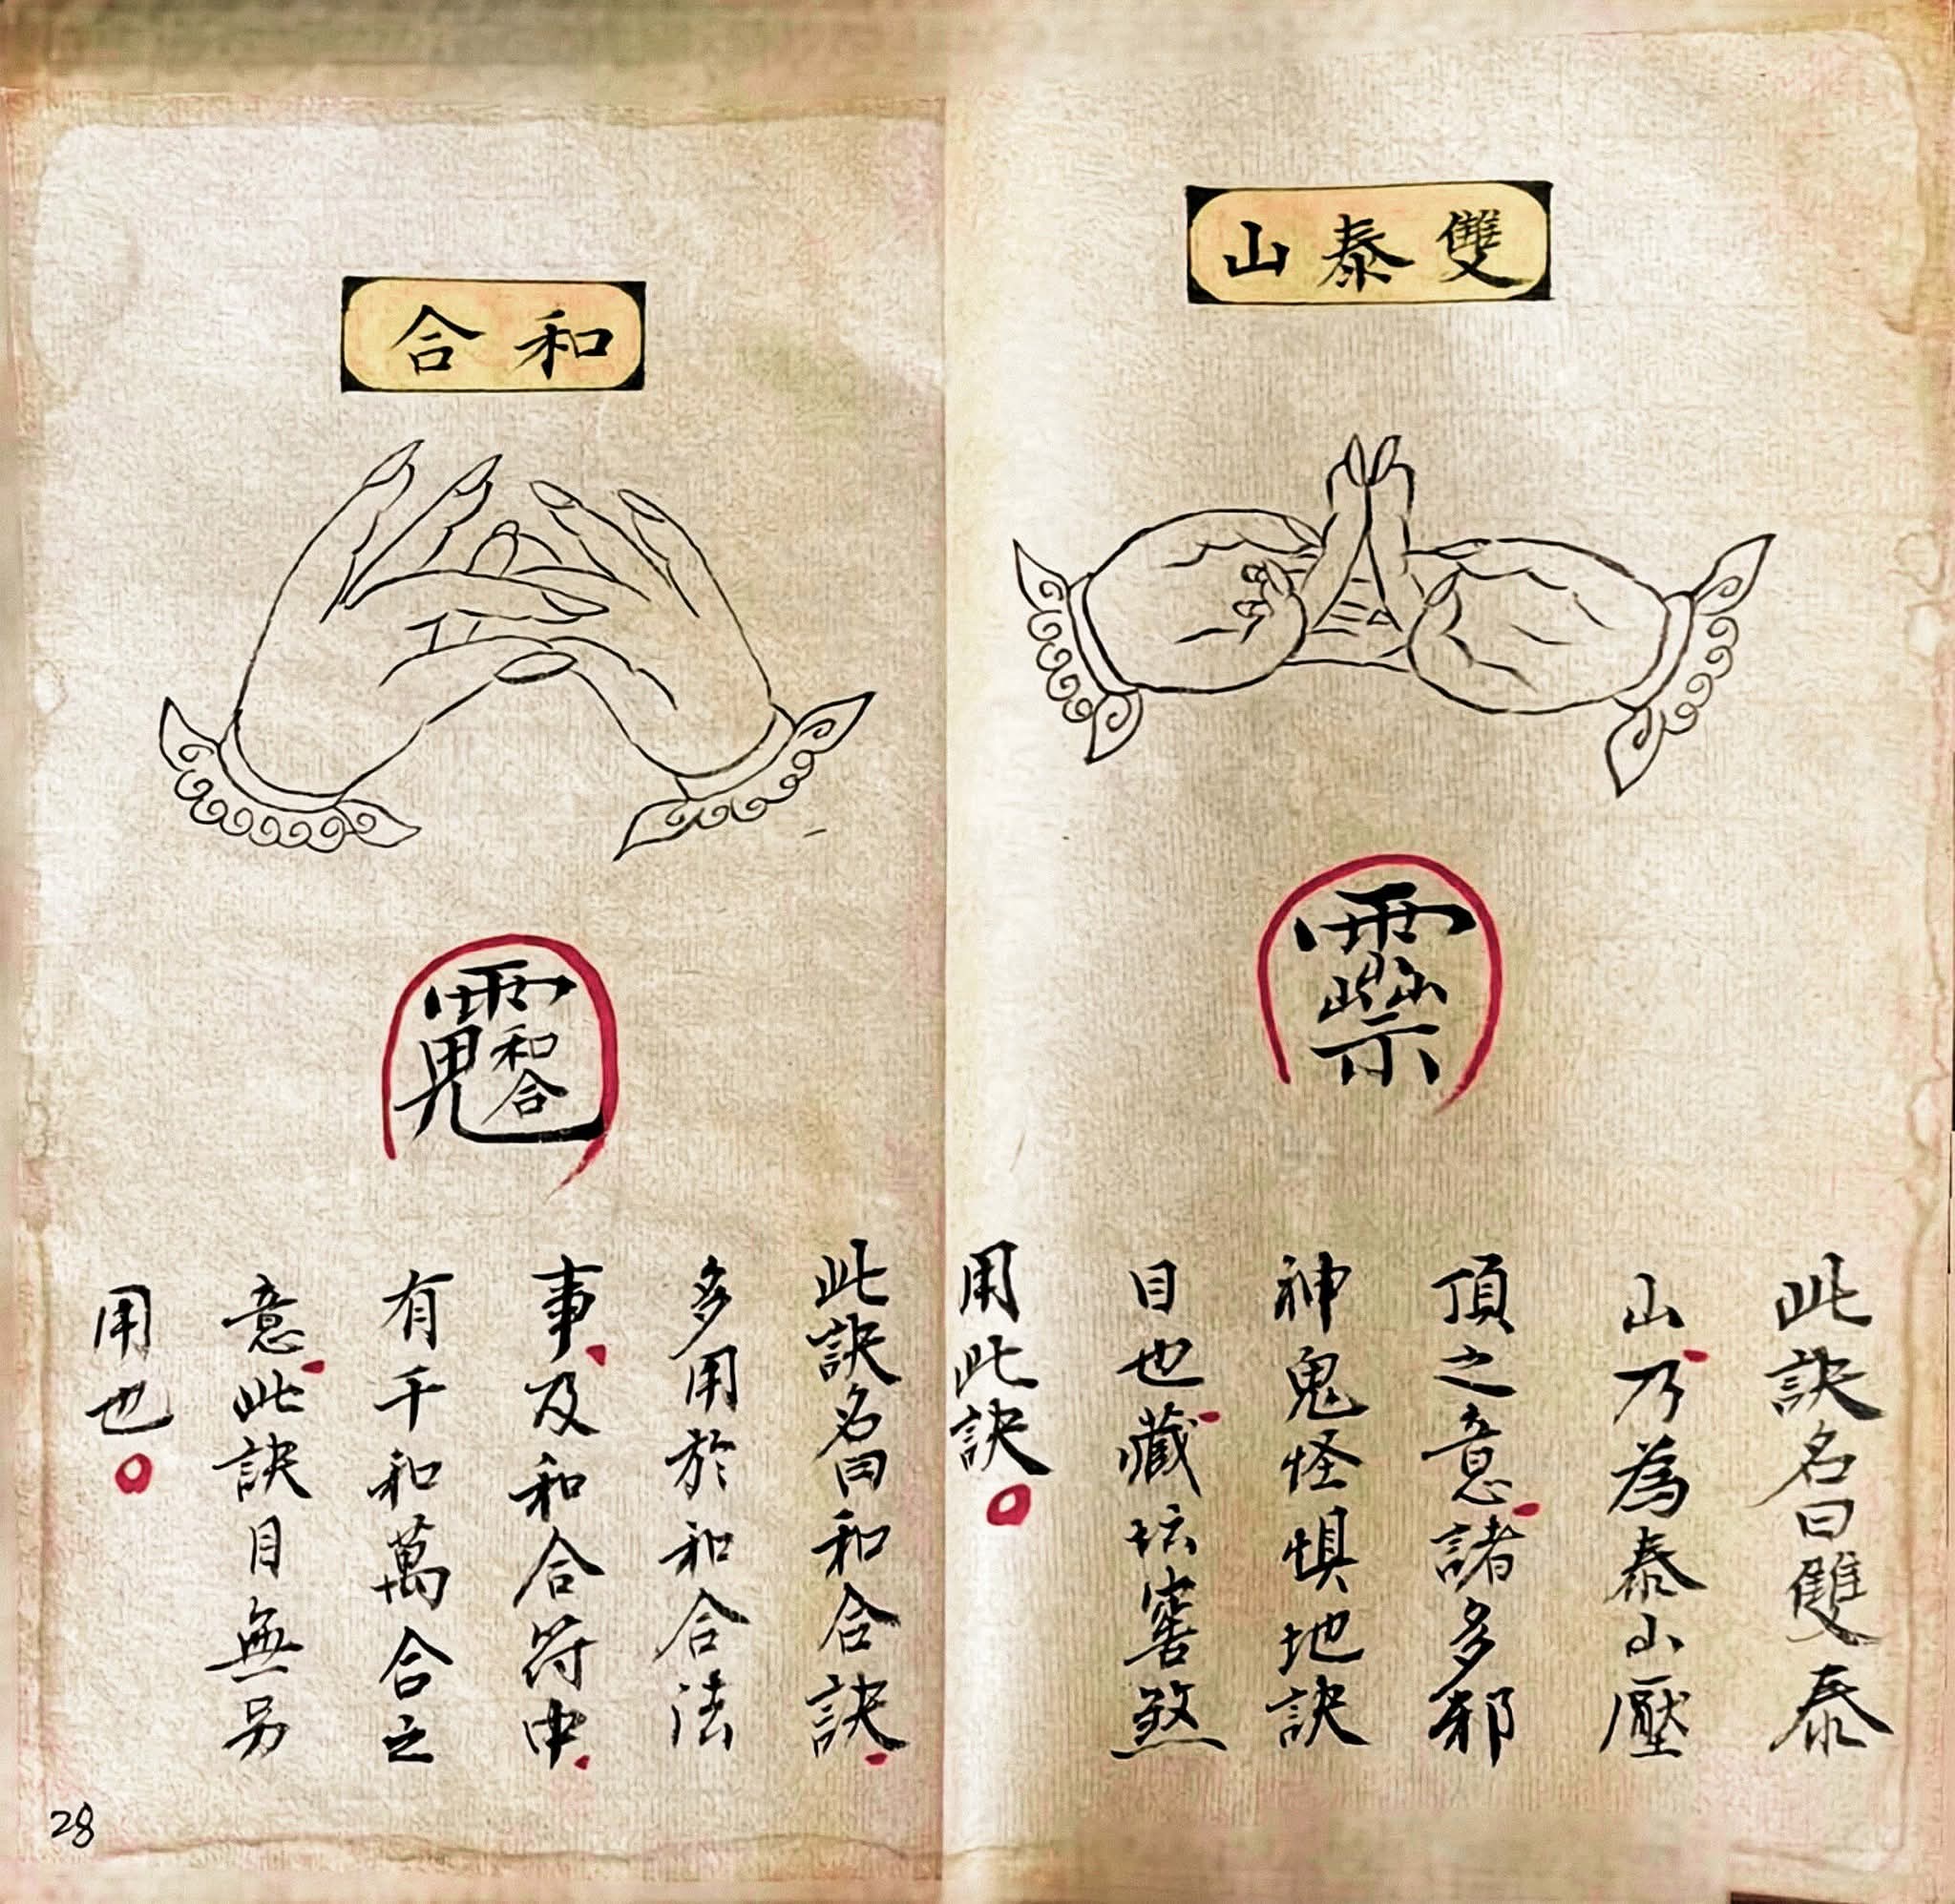 雙泰山
此訣名曰雙泰
山乃為泰山壓
頂之意諸多邪
神鬼怪惧地訣
目也藏坛窖煞
用此訣
和合
和合
此訣名曰和合訣
多用於和合法
事及和合符中
有千和萬合之
意此訣目無另
用也
28